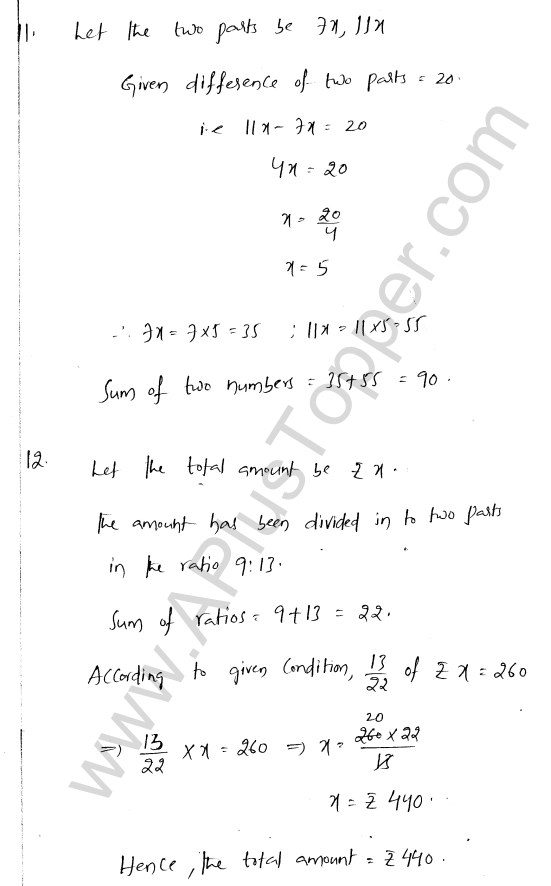 11. Let the two parts be 7x, 11x
Given difference of two parts = 20.
i.e 11x - 7x = 20
4x = 20
x = 20/4
x = 5
∴ 7x = 7×5 = 35 ; 11x = 11×5 = 55
Sum of two numbers = 35+55 = 90.
12. Let the total amount be ₹ x.
The amount has been divided in to two parts
in the ratio 9:13.
Sum of ratios = 9+13 = 22.
According to given Condition, 13/22 of ₹ x = 260
⇒ 13/22 × x = 260 ⇒ x = 20 260 × 22 / 13
x = ₹ 440.
Hence, the total amount = ₹ 440.
www.APlusTopper.com